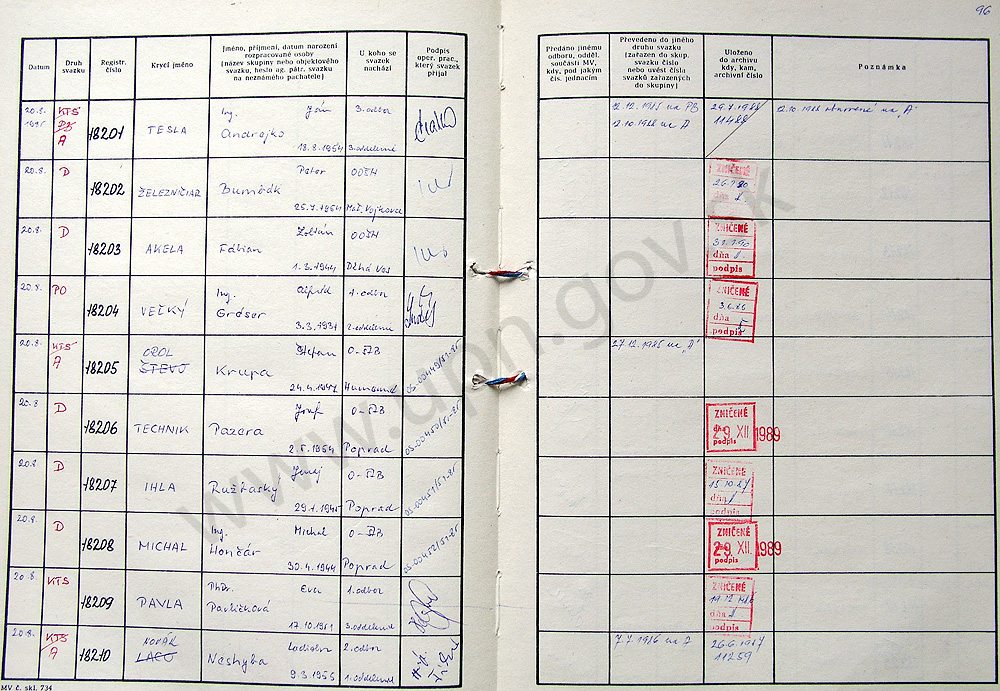 96
Datum
Druh svazku
Registr. číslo
Krycí jméno
Jméno, příjmení, datum narození
rozpracované osoby
(název skupiny nebo objektového
svazku, heslo ag. pátr. svazku
na neznámého pachatele)
U koho se
svazek
nachází
Podpis
oper. prac.,
který svazek
přijal
Předáno jinému
odboru, odděl.
součásti MV,
kdy, pod jakým
čís. jednacím
Převedeno do jiného
druhu svazku
(zařazen do skup.
svazku číslo
nebo uvést čísla
svazků zařazených
do skupiny)
Uloženo
do archivu
kdy, kam,
archivní číslo
Poznámka
20.8. KTS Ing. Ján 3. odbor 12.12.1985 na PO 29.7.1988 12.10.1988 obnovené na "A"
1985 A 18201 TESLA Andrejko 12.10.1988 na A 11488
18.8.1954 3. oddelenie
20.8. D Peter OOŠH ZNIČENÉ
18202 ŽELEZNIČIAR Bumbák
25.7.1954
20.8. D Zoltán OOŠH ZNIČENÉ
18203 AKELA Fábian 31.1.90
1.3.1944 Dlhá Ves dňa
podpis
PO Ing. odbor ZNIČENÉ
18204 VEĽKÝ Gróser
3.3.1931 2. oddelenie dňa
podpis
20.8. KTS OROL Štefan O-ŠTB 27.12.1985 na "A"
A 18205 ŠTEVO Krupa
24.4.1947 Humenné
20.8. D Jozef O-ŠTB ZNIČENÉ
18206 TECHNIK Pazera 29. XII. 1989
1954 Poprad podpis
20.8. D O-ŠTB ZNIČENÉ
18207 IHLA Ružbaský 15.10.87
29.1.1945 Poprad dňa
podpis
20.8. D Ing. Michal O-ŠTB ZNIČENÉ
18208 MICHAL Hončár 29. XII. 1989
30.4.1944 Poprad podpis
20.8. KTS PhDr. Eva 1. odbor ZNIČENÉ
18209 PAVLA Pavličková
17.10.1951 3. oddelenie dňa
podpis
20.8. KTS NOVÁK Ladislav 2. odbor 7.7.1986 na A 26.6.1987
A 18210 LACO Neshyba 11259
9.3.1955 1. oddelenie
MV č. skl. 734
www.upn.gov.sk